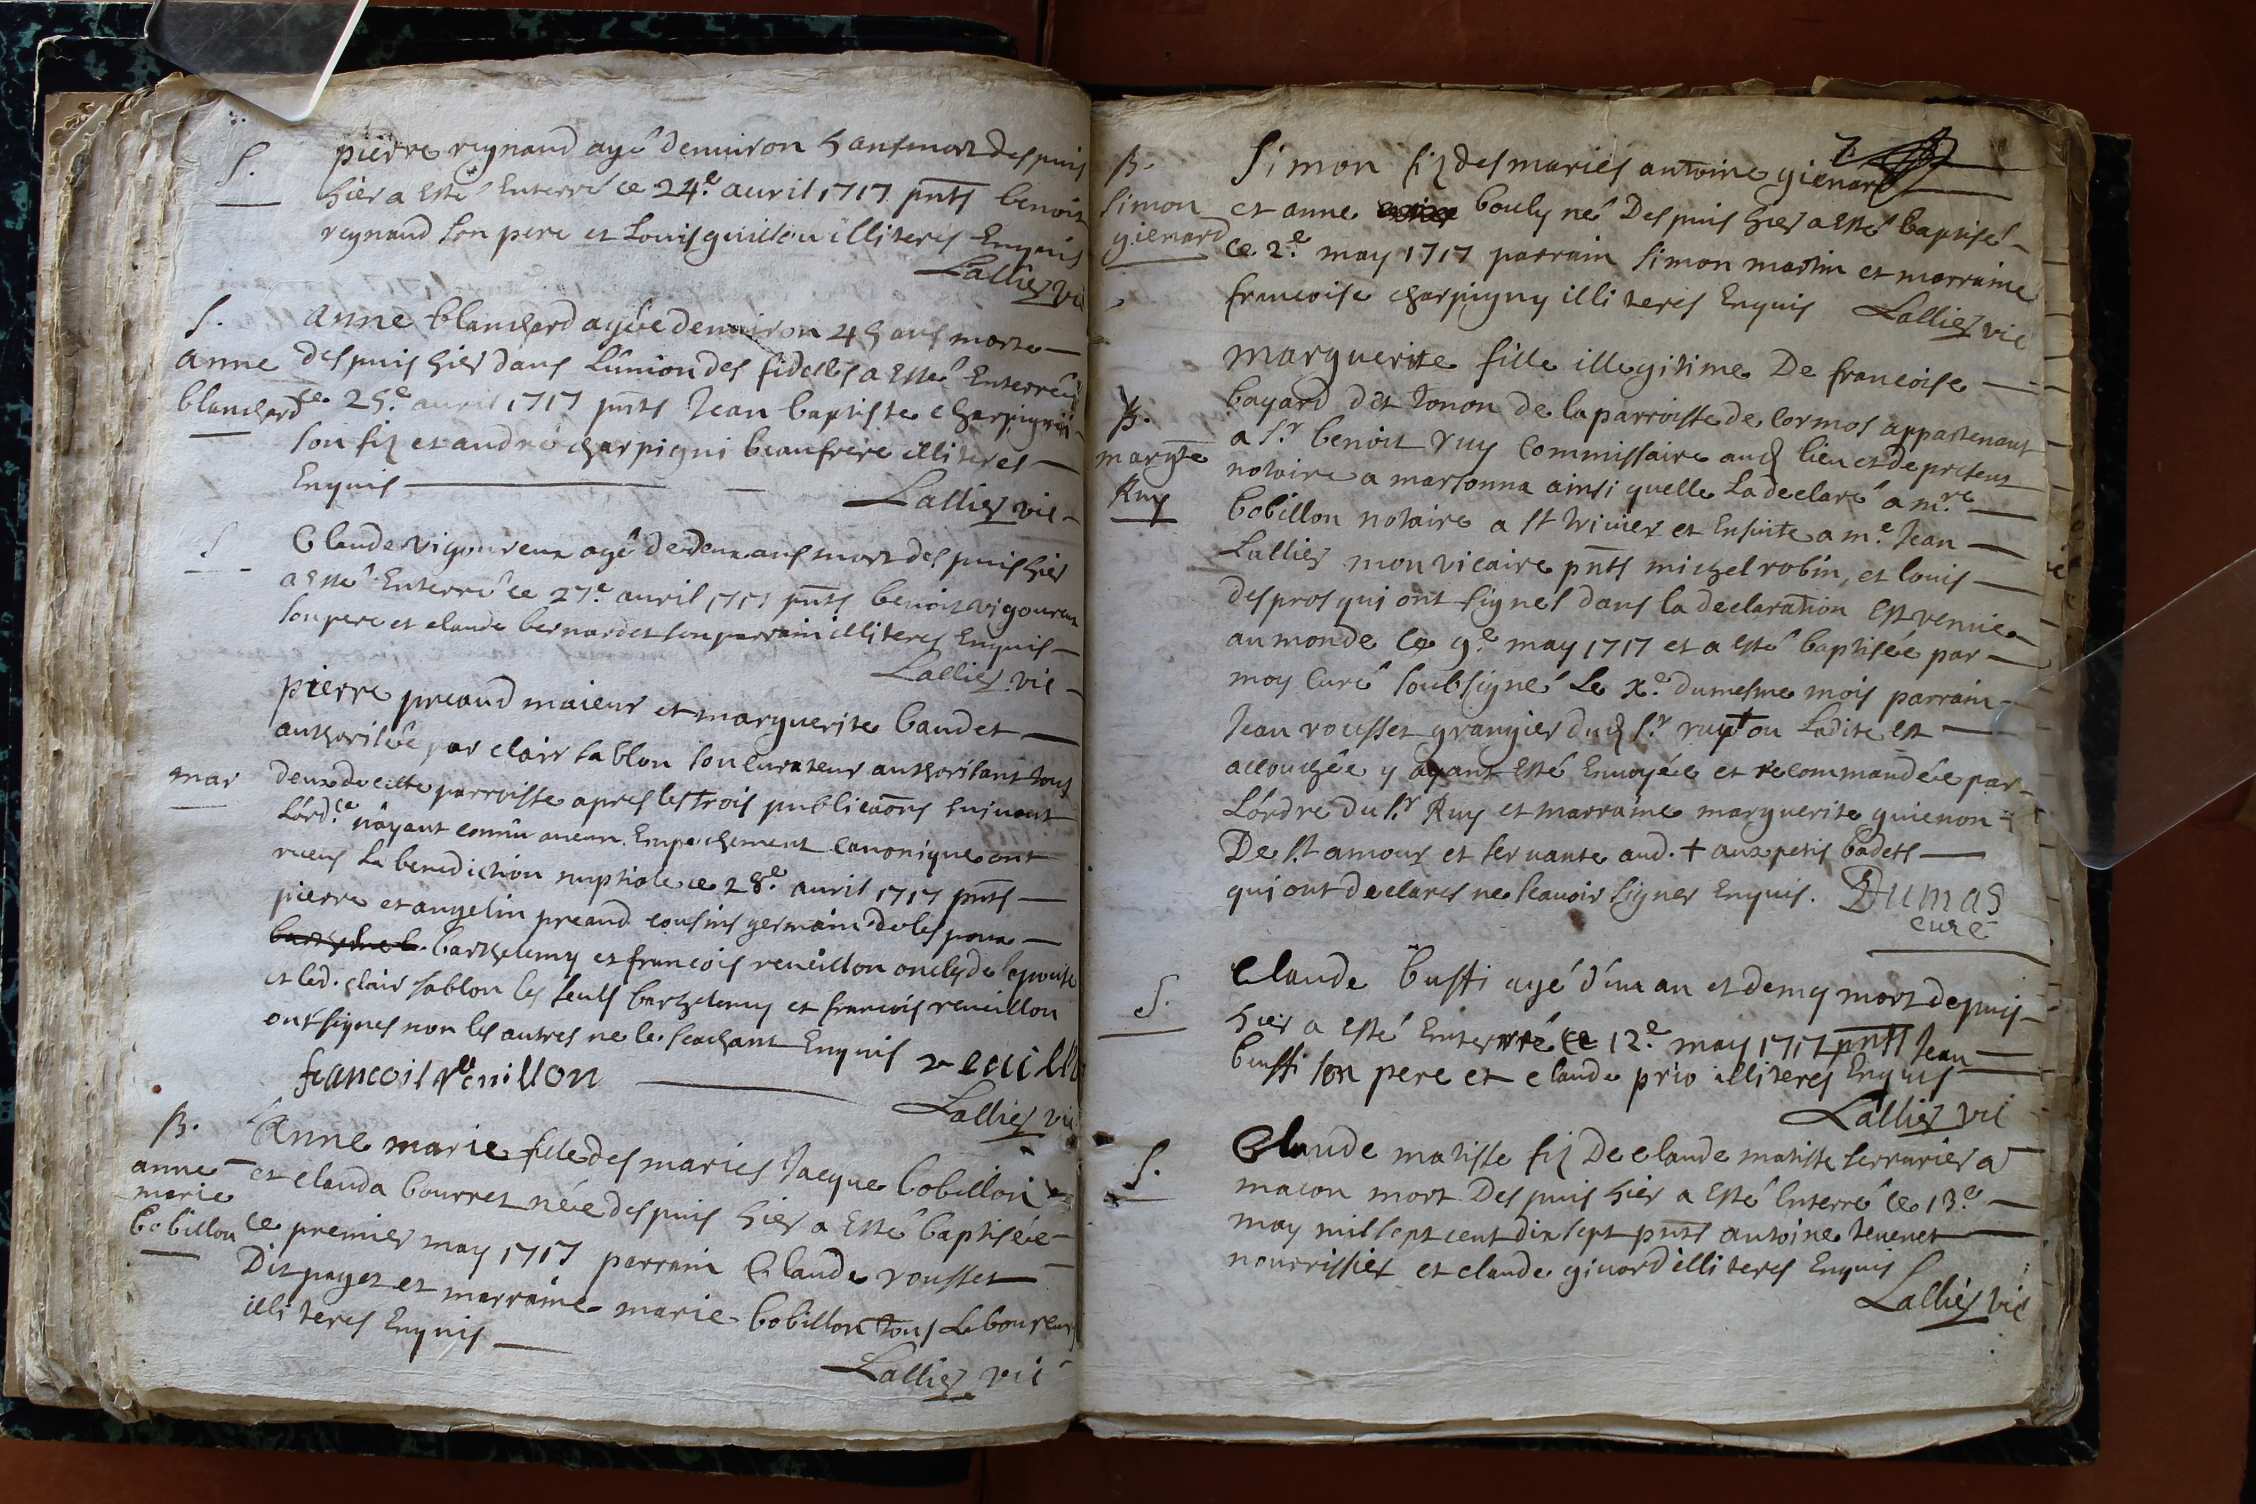 S.
pierre reynaud agé denuiron 5 ans mort despuis
hier a esté Enterré ce 24.e auril 1717 pnts benoit
reynaud son pere et Louis guillou illiteres Enquis
Lallier vic
S.
anne
blanchard
anne blanchard agée denuiron 45 ans morte
despuis hier dans L'union des fidelles a esté Enterrée
ce 25.e auril 1717 pnts Jean baptiste charpigni
son fiz et andré charpigni beaufrere illiteres
Enquis
Lallier vic
S
Claude vigoureux agé de deux ans mort despuis hier
a esté Enterré ce 27.e auril 1717 pnts benoit vigoureux
son pere et claude bernardet son parrain illiteres Enquis
Lallier vic
mar
pierre preaud maieur et marguerite baudet
authorisée par clair sablon son curateur authorisant tous
deux de cette parroisse apres les trois publicaons suiuant
L'ord.ce n'ayant connû aucun Empechement canonique ont
receus la benediction nuptiale ce 28.e auril 1717 pnts
pierre et angelin preaud cousins germains de lespoux
barthelemy et francois reueillon oncles de lepouse
et led. clair sablon les seuls barthelemy et francois reueillon
ont signes non les autres ne le scachant Enquis
francois reuillon
Lallier vic
B.
anne
marie
bobillon
Anne marie fille des maries Jacque bobillon
et clauda bourret née despuis hier a esté baptisée
ce premier may 1717 parrain Claude rousset
Dit paget et marraine marie bobillon tous Laboureurs
illiteres Enquis
Lallier vic
7
B.
Simon
gienard
Simon fiz des maries antoine gienard
et anne bouly né Despuis hier a esté baptisé
ce 2.e may 1717 parrain Simon martin et marraine
francoise charpigny illiteres Enquis
Lallier vic
B.
margte
Ruy
Marguerite fille illegitime De francoise
bayard dit tonon de la parroisse de cormos appartenant
a Sr benoit ruy Commissaire aud lieu et de present
notaire a marsonna ainsi quelle La declaré a mre
bobillon notaire a St triuier et Ensuite a m.e Jean
Lallier mon vicaire pnts michel robin, et louis
despros qui ont signes dans la declaration est venue
au monde le 9.e may 1717 et a esté baptisée par
moy Curé soubsigné Le x.e du mesme mois parrain
Jean rousset grangier dud Sr ruy + ou Ladite est
accouchée y ayant esté Enuoyée et recommandée par
L'ordre du Sr Ruy et marraine marguerite guienon
De St amour et seruante aud. + aux petis badets
qui ont declares ne scauoir signer Enquis. Dumas
curé
S.
Claude bussi agé d'un an et demy mort depuis
hier a esté Enterré ce 12.e may 1717 pnts Jean
bussi son pere et claude prio illiteres Enquis
Lallier vic
S.
Claude matisse fiz De claude matisse serrurier a
macon mort Despuis hier a esté Enterré ce 13.e
may mil sept cent dix sept pnts antoine teuenet
nourrissier et claude giuord illiteres Enquis
Lallier vic